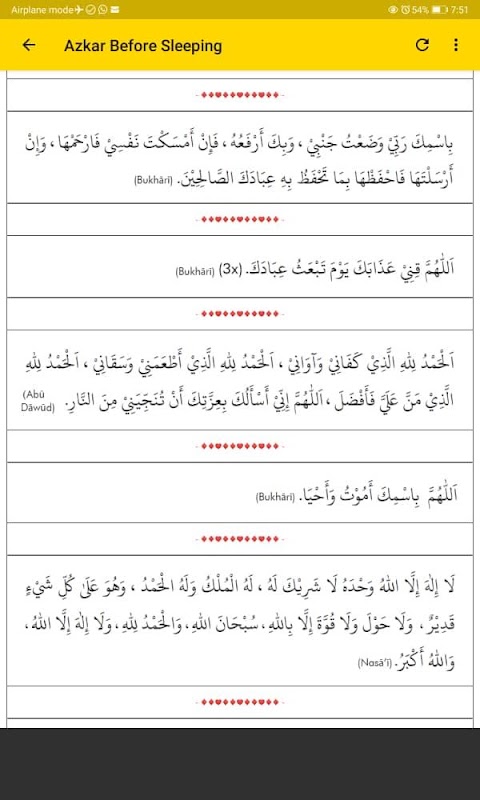 Airplane mode 54% 7:51
Azkar Before Sleeping
بِاسْمِكَ رَبِّيْ وَضَعْتُ جَنْبِيْ ، وَبِكَ أَرْفَعُهُ ، فَإِنْ أَمْسَكْتَ نَفْسِيْ فَارْحَمْهَا ، وَإِنْ
أَرْسَلْتَهَا فَاحْفَظْهَا بِمَا تَحْفَظُ بِهِ عِبَادَكَ الصَّالِحِيْنَ. (Bukhārī)
اَللّٰهُمَّ قِنِيْ عَذَابَكَ يَوْمَ تَبْعَثُ عِبَادَكَ. (3x) (Bukhārī)
اَلْحَمْدُ لِلّٰهِ الَّذِيْ كَفَانِيْ وَآوَانِيْ ، اَلْحَمْدُ لِلّٰهِ الَّذِيْ أَطْعَمَنِيْ وَسَقَانِيْ ، اَلْحَمْدُ لِلّٰهِ
الَّذِيْ مَنَّ عَلَيَّ فَأَفْضَلَ ، اَللّٰهُمَّ إِنِّيْ أَسْأَلُكَ بِعِزَّتِكَ أَنْ تُنَجِّيَنِيْ مِنَ النَّارِ. (Abū Dāwūd)
اَللّٰهُمَّ بِاسْمِكَ أَمُوْتُ وَأَحْيَا. (Bukhārī)
لَا إِلٰهَ إِلَّا اللّٰهُ وَحْدَهُ لَا شَرِيْكَ لَهُ ، لَهُ الْمُلْكُ وَلَهُ الْحَمْدُ ، وَهُوَ عَلَىٰ كُلِّ شَيْءٍ
قَدِيْرٌ ، وَلَا حَوْلَ وَلَا قُوَّةَ إِلَّا بِاللّٰهِ، سُبْحَانَ اللّٰهِ، وَالْحَمْدُ لِلّٰهِ، وَلَا إِلٰهَ إِلَّا اللّٰهُ،
وَاللّٰهُ أَكْبَرُ. (Nasā'ī)